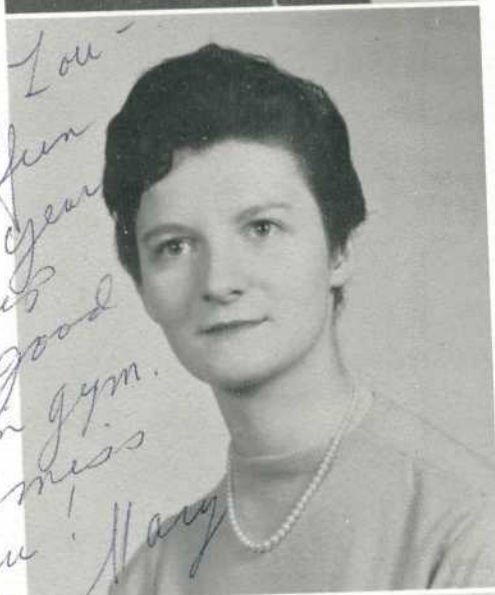 Lou-
fun
year
good
gym.
miss
! Mary